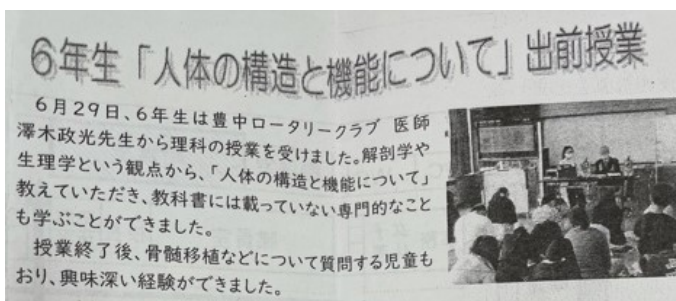 6年生「人体の構造と機能について」出前授業
6月29日、6年生は豊中ロータリークラブ 医師
澤木政光先生から理科の授業を受けました。解剖学や
生理学という観点から、「人体の構造と機能について」
教えていただき、教科書には載っていない専門的なこと
も学ぶことができました。
授業終了後、骨髄移植などについて質問する児童も
おり、興味深い経験ができました。